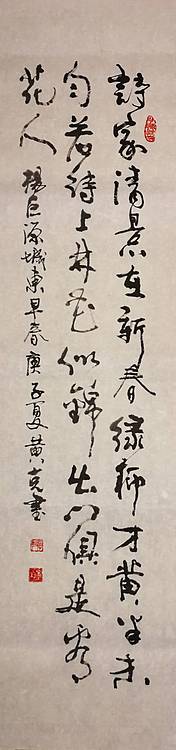 詩家清景在新春綠柳才黃半未
勻若待上林花似錦出門俱是看
花人 楊巨源城東早春庚子夏黃克書